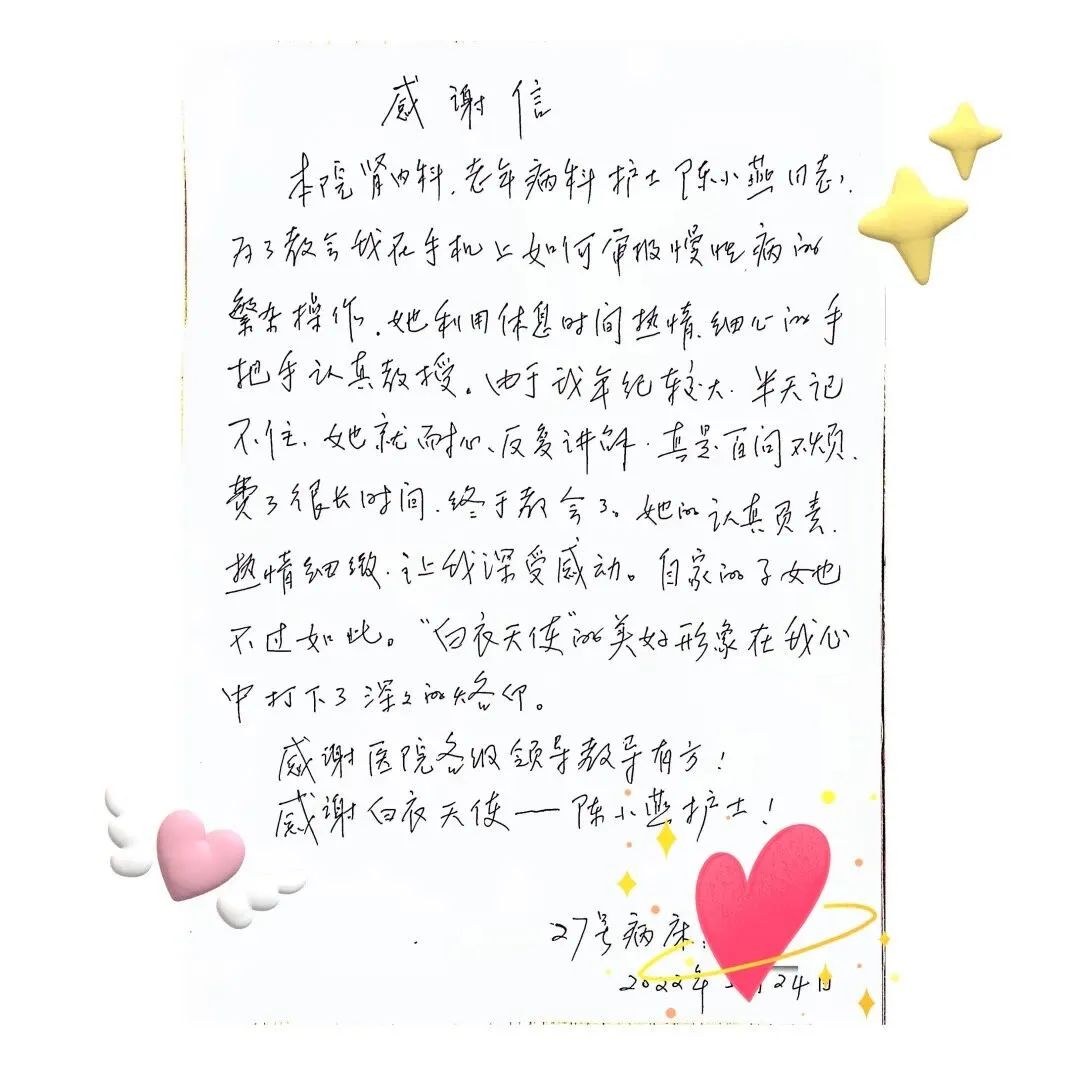 感谢信
本院肾内科、老年病科护士陈小燕同志,
为了教会我在手机上如何审报慢性病的
繁杂操作,她利用休息时间热情、细心的手
把手认真教授。由于我年纪较大,半天记
不住,她就耐心、反复讲解,真是百问不烦,
费了很长时间,终于教会了。她的认真负责,
热情细致,让我深受感动。自家的子女也
不过如此。“白衣天使”的美好形象在我心
中打下了深深的烙印。
感谢医院各级领导教导有方!
感谢白衣天使——陈小燕护士!
27号病床:
2022年 24日